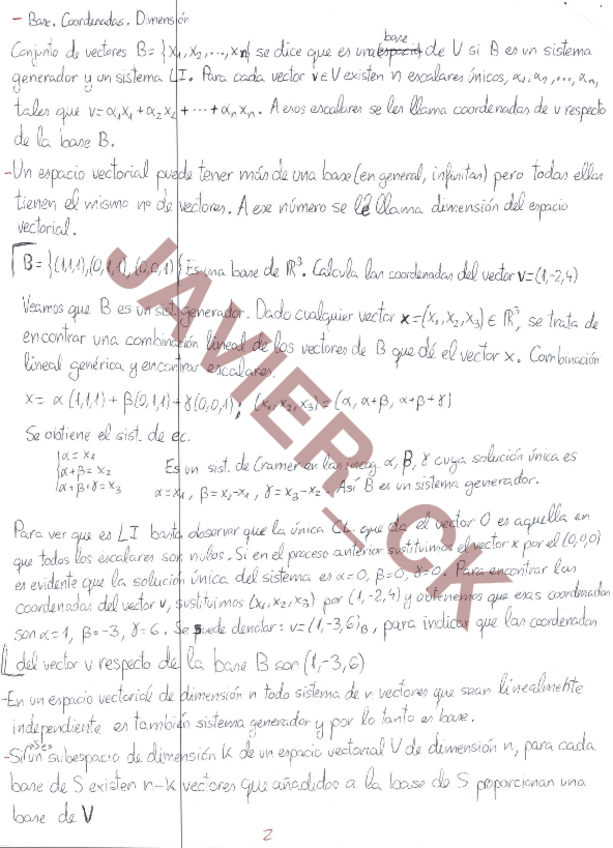 - Base. Coordenadas. Dimensión
Conjunto de vectores B={x₁,x₂,...,xₙ} se dice que es una base de V si B es un sistema
generador y un sistema LI. Para cada vector v∈V existen n escalares únicos, α₁, αₙ, ..., αₙ,
tales que v=α₁x₁+α₂x₂+...+αₙxₙ. A esos escalares se les llama coordenadas de v respecto
de la base B.
-Un espacio vectorial puede tener más de una base (en general, infinitas) pero todas ellas
tienen el mismo nº de vectores. A ese número se le llama dimensión del espacio
vectorial.
B={(1,1,1),(0,1,1),(0,0,1)} Es una base de ℝ³. Calcula las coordenadas del vector v=(1,-2,4)
Veamos que B es un sist. generador. Dado cualquier vector x=(x₁,x₂,x₃)∈ℝ³, se trata de
encontrar una combinación lineal de los vectores de B que dé el vector x. Combinación
lineal genérica y encontrar escalares.
x= α(1,1,1)+β(0,1,1)+γ(0,0,1); (x₁,x₂,x₃)=(α, α+β, α+β+γ)
Se obtiene el sist. de ec.
{α=x₁
{α+β=x₂ Es un sist. de Cramer en las incog. α, β, γ cuya solución única es
{α+β+γ=x₃ α=x₁, β=x₂-x₁, γ=x₃-x₂. Así B es un sistema generador.
Para ver que es LI basta observar que la única CL que da el vector 0 es aquella en
que todos los escalares son nulos. Si en el proceso anterior sustituimos el vector x por el (0,0,0)
es evidente que la solución única del sistema es α=0, β=0, γ=0. Para encontrar las
coordenadas del vector v, sustituimos (x₁,x₂,x₃) por (1,-2,4) y obtenemos que esas coordenadas
son α=1, β=-3, γ=6. Se puede denotar: v=(1,-3,6)B, para indicar que las coordenadas
del vector v respecto de la base B son (1,-3,6)
-En un espacio vectorial de dimensión n todo sistema de n vectores que sean linealmente
independiente es también sistema generador y por lo tanto es base.
-Si S es un subespacio de dimensión k de un espacio vectorial V de dimensión n, para cada
base de S existen n-k vectores que añadidos a la base de S proporcionan una
base de V
2
JAVIER_CK